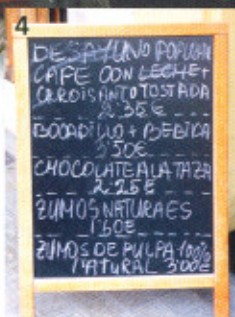 4
DESAYUNO POPULAR
CAFE CON LECHE+
CROISANT O TOSTADA
2'35€
BOCADILLO + BEBIDA
3'50€
CHOCOLATE A LA TAZA
2'25€
ZUMOS NATURAES
1'80€
ZUMOS DE PULPA 100%
NATURAL 3'00€